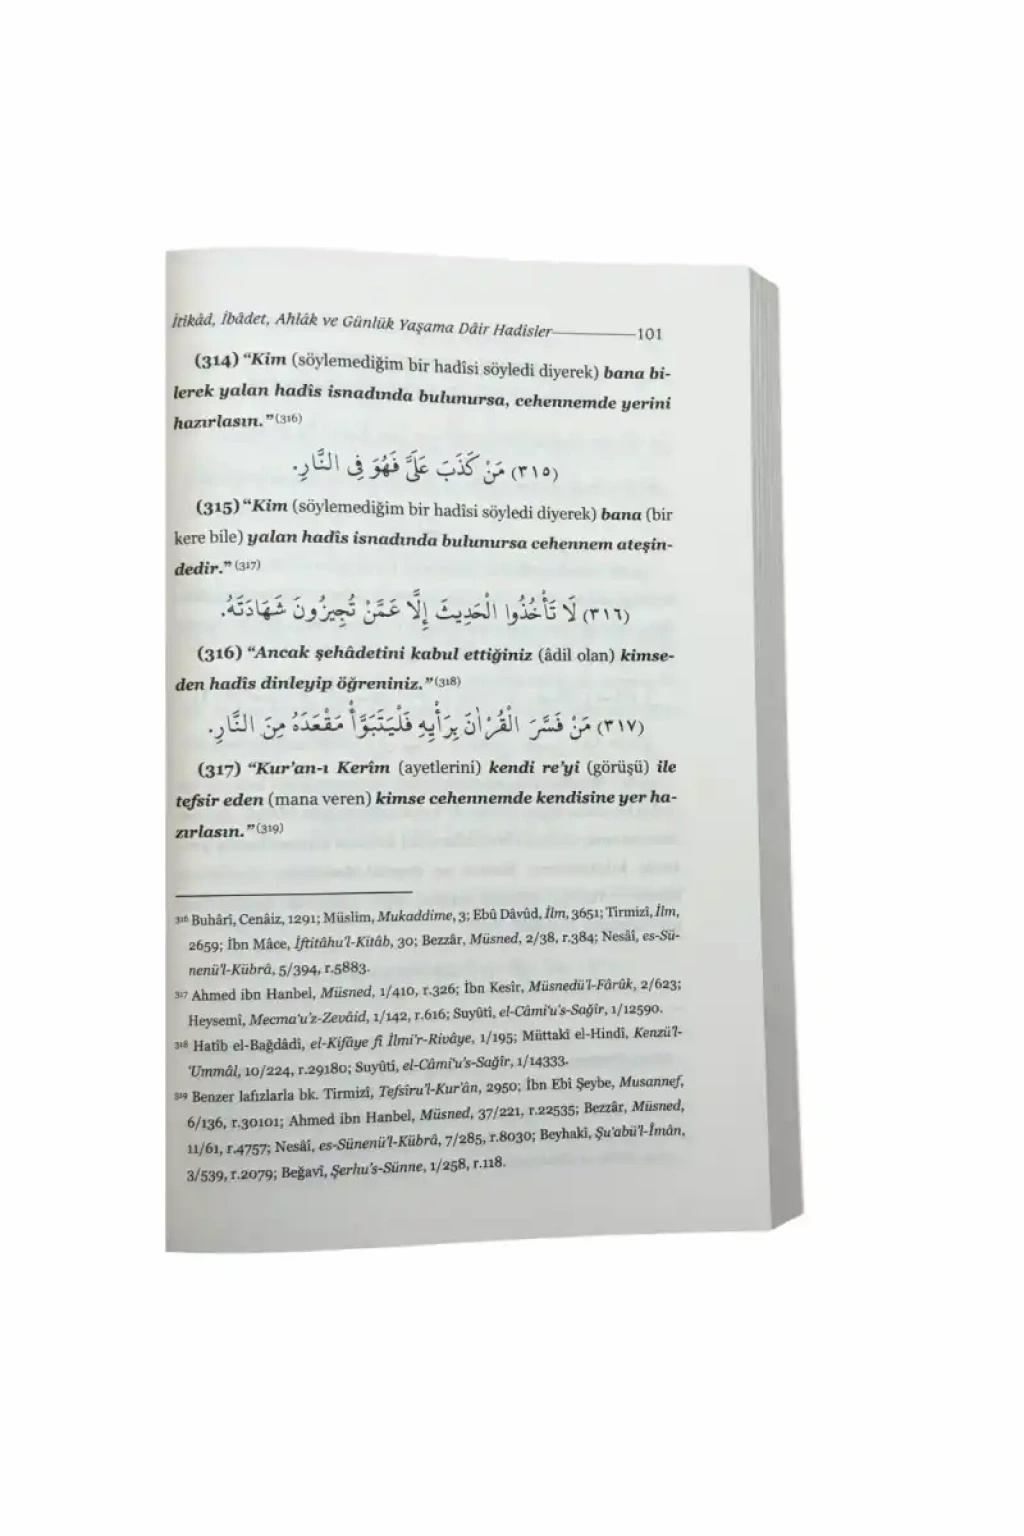 İtikâd, İbâdet, Ahlâk ve Günlük Yaşama Dâir Hadisler 101
(314) “Kim (söylemediğim bir hadîsi söyledi diyerek) bana bi-
lerek yalan hadîs isnadında bulunursa, cehennemde yerini
hazırlasın.”(316)
(٣١٥) مَنْ كَذَبَ عَلَيَّ فَهُوَ فِي النَّارِ.
(315) “Kim (söylemediğim bir hadîsi söyledi diyerek) bana (bir
kere bile) yalan hadîs isnadında bulunursa cehennem ateşin-
dedir.” (317)
(٣١٦) لَا تَأْخُذُوا الْحَدِيثَ إِلَّا عَمَّنْ تُجِيزُونَ شَهَادَتَهُ.
(316) “Ancak şehâdetini kabul ettiğiniz (âdil olan) kimse-
den hadîs dinleyip öğreniniz.”(318)
(٣١٧) مَنْ فَسَّرَ الْقُرْاٰنَ بِرَأْيِهِ فَلْيَتَبَوَّأْ مَقْعَدَهُ مِنَ النَّارِ.
(317) “Kur’an-ı Kerîm (ayetlerini) kendi re’yi (görüşü) ile
tefsir eden (mana veren) kimse cehennemde kendisine yer ha-
zırlasın.”(319)
316 Buhârî, Cenâiz, 1291; Müslim, Mukaddime, 3; Ebû Dâvûd, İlm, 3651; Tirmizî, İlm,
2659; İbn Mâce, İftitâhu’l-Kitâb, 30; Bezzâr, Müsned, 2/38, r.384; Nesâî, es-Sü-
nenü’l-Kübrâ, 5/394, r.5883.
317 Ahmed ibn Hanbel, Müsned, 1/410, r.326; İbn Kesîr, Müsnedü’l-Fârûk, 2/623;
Heysemî, Mecma’u’z-Zevâid, 1/142, r.616; Suyûtî, el-Câmi’u’s-Sağîr, 1/12590.
318 Hatîb el-Bağdâdî, el-Kifâye fî İlmi’r-Rivâye, 1/195; Müttakî el-Hindî, Kenzü’l-
‘Ummâl, 10/224, r.29180; Suyûtî, el-Câmi’u’s-Sağîr, 1/14333.
319 Benzer lafızlarla bk. Tirmizî, Tefsîru’l-Kur’ân, 2950; İbn Ebî Şeybe, Musannef,
6/136, r.30101; Ahmed ibn Hanbel, Müsned, 37/221, r.22535; Bezzâr, Müsned,
11/61, r.4757; Nesâî, es-Sünenü’l-Kübrâ, 7/285, r.8030; Beyhakî, Şu’abü’l-Îmân,
3/539, r.2079; Beğavî, Şerhu’s-Sünne, 1/258, r.118.